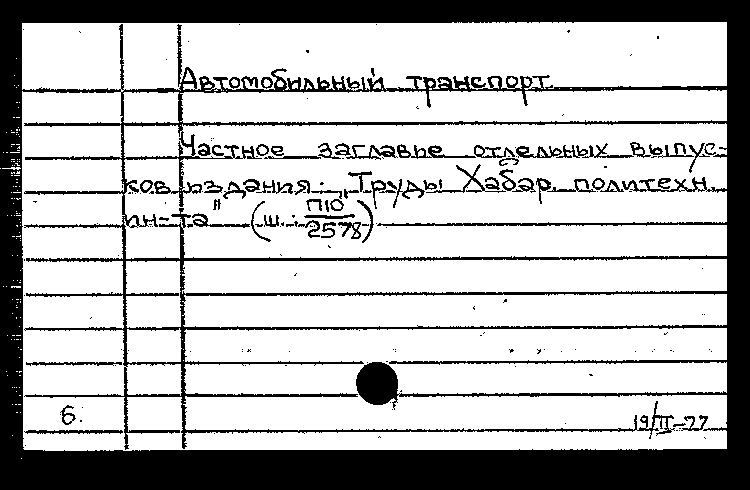 Автомобильный транспорт
Частное заглавье отдельных выпус-
ков издания: „Труды Хабар. политехн.
ин-та" (ш.: П10/2578)
6.
19/II-77